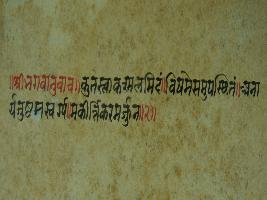 ॥श्रीभगवानुवाच॥कुतस्त्वाकश्मलमिदं॥विषमेसमुपस्थितं॥अना
र्यजुष्टमस्वर्ग्य॥मकीर्त्तिकरमर्जुन॥२॥